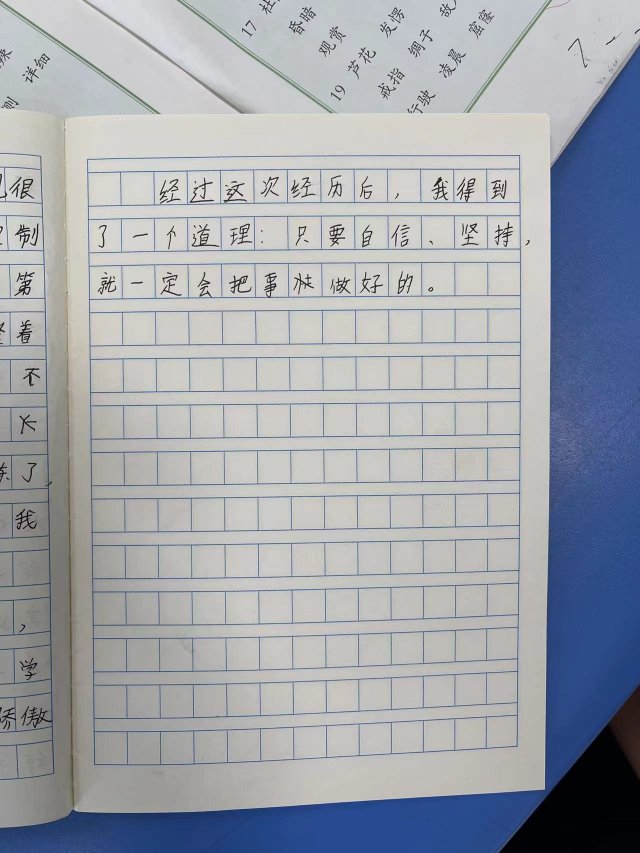 详细
17 杜
昏暗
观赏
19 芦花 发愣
戒指 绸子
行驶 凌晨 窟窿
很
制
第
着
不
了，
我
，
学
骄傲
经过这次经历后，我得到
了一个道理：只要自信、坚持，
就一定会把事快做好的。